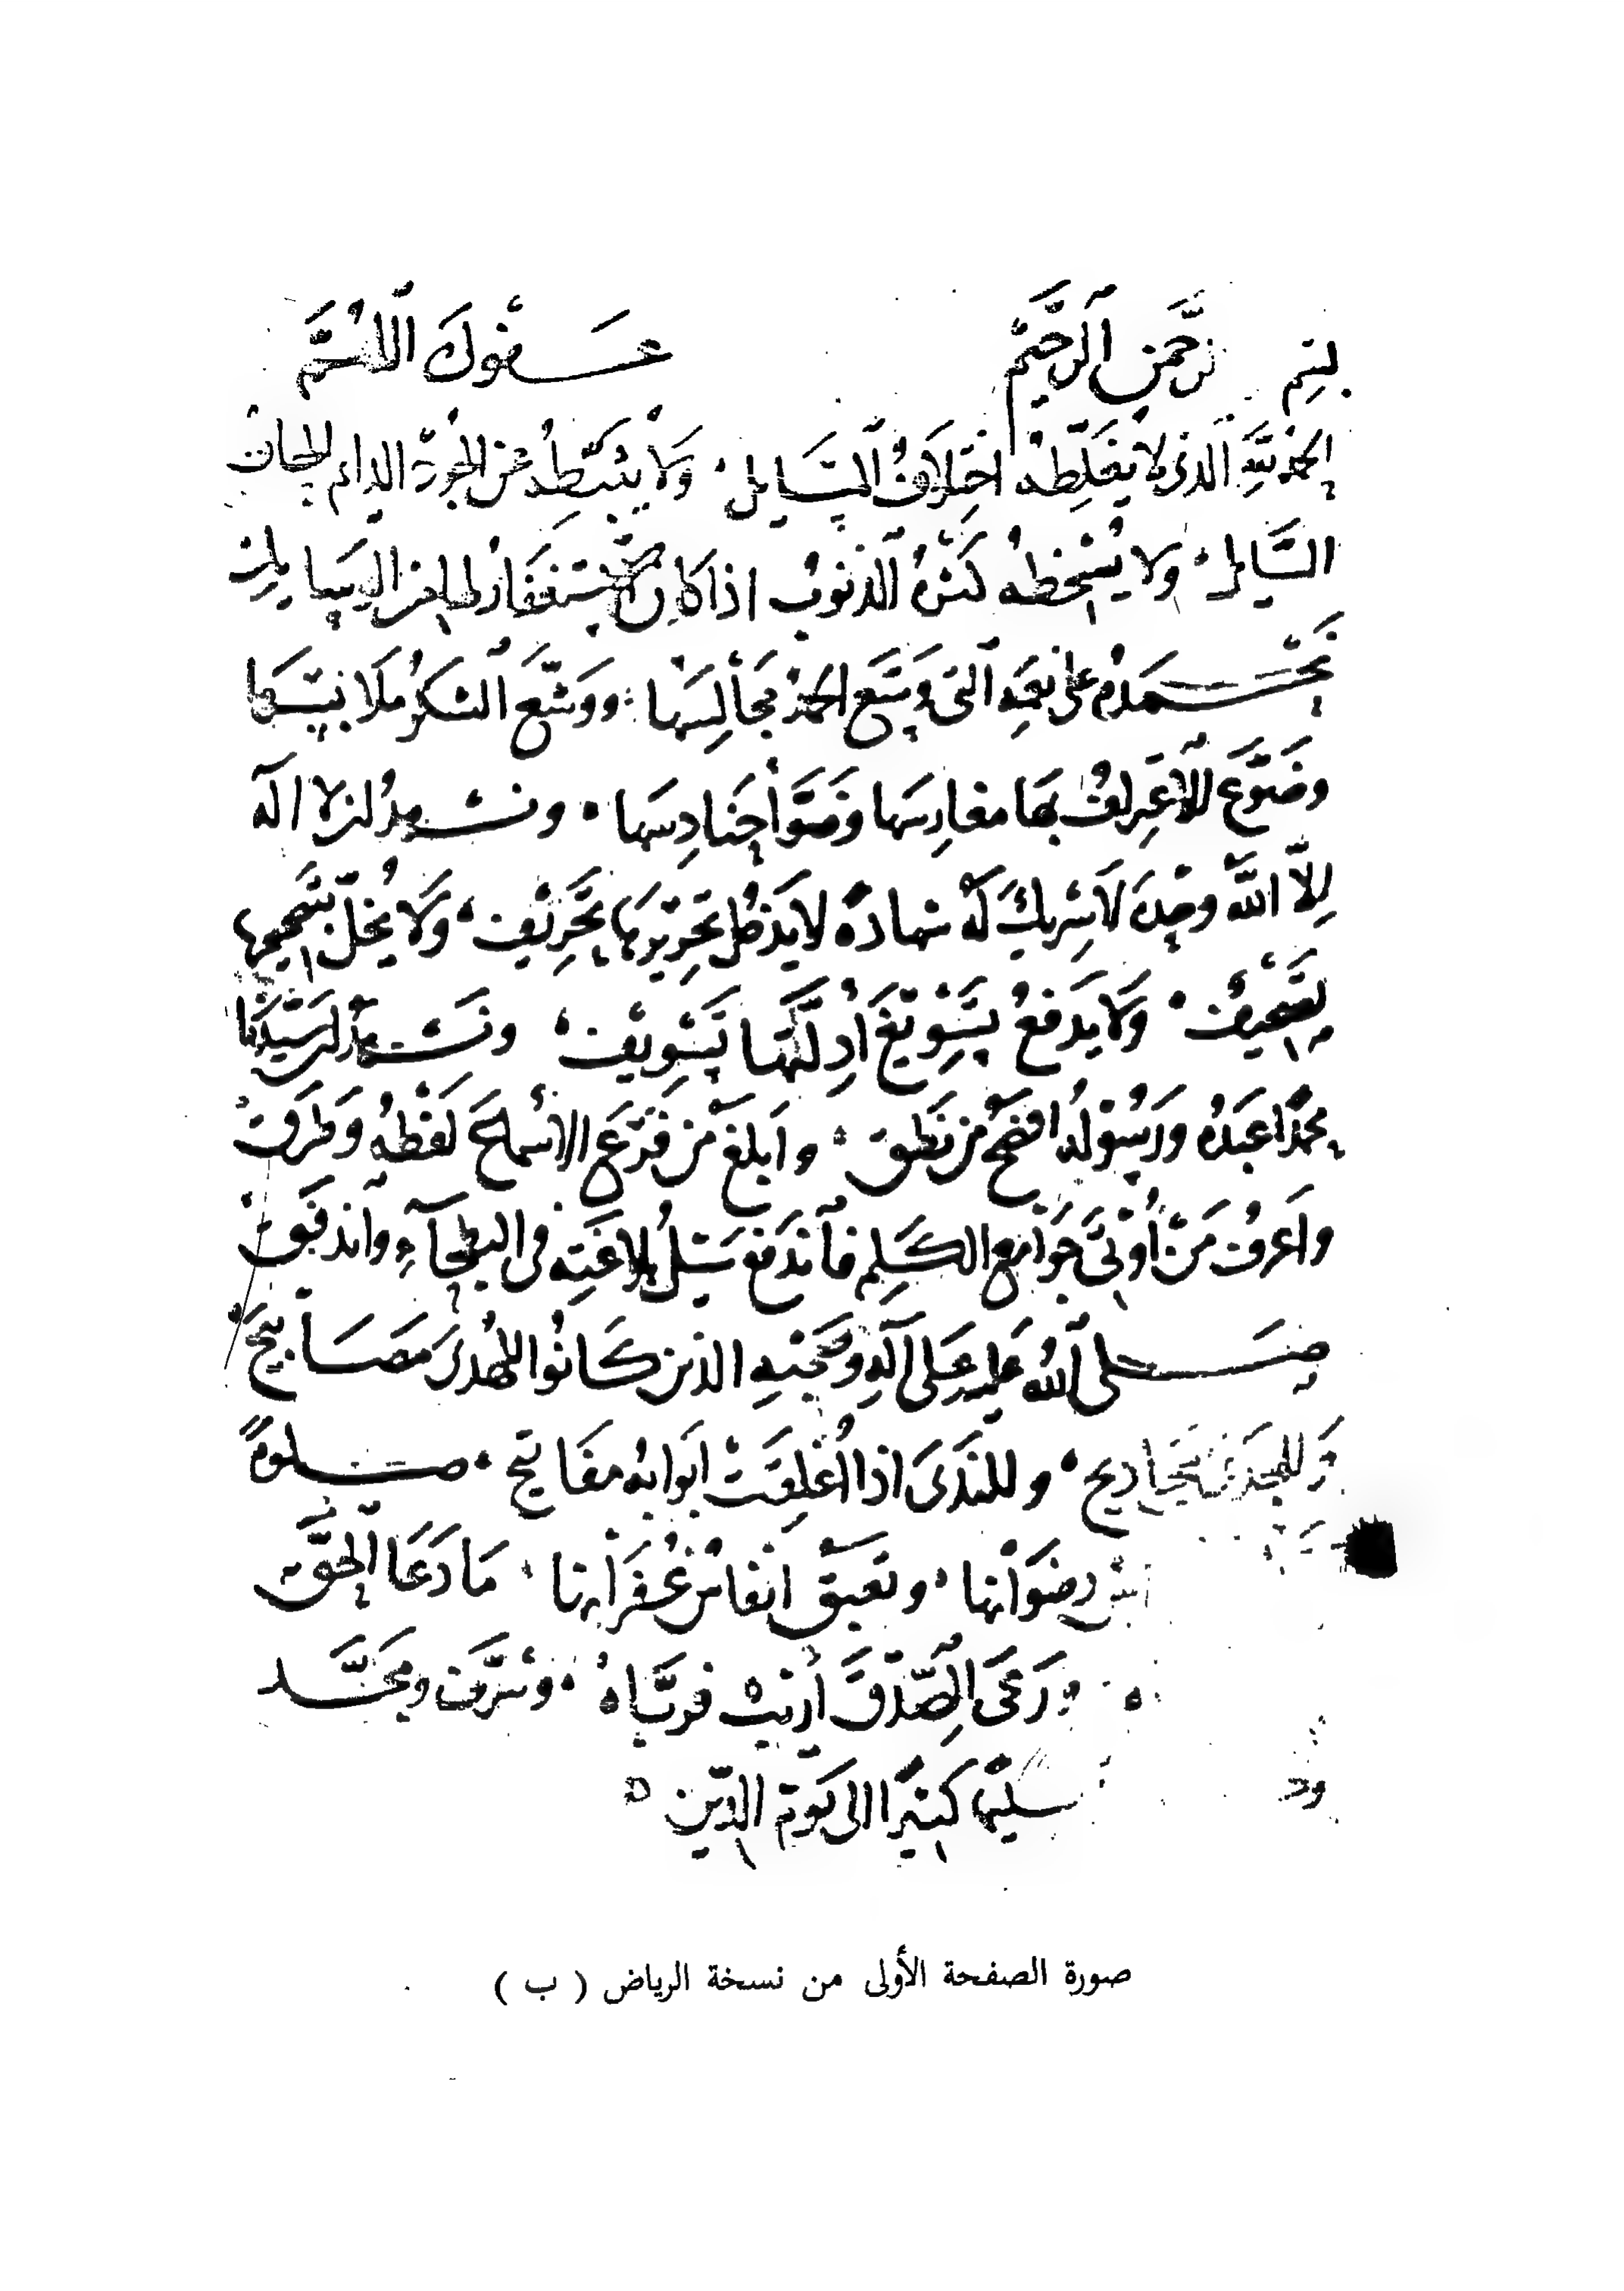 بسم الرحمن الرحيم عفوك اللهم
الحمد لله الذى لا يغلطه اختلاف المسايل ولا يثبطه عن الجود الدايم
السايل ولا يسخطه كثرة الذنوب اذا كان الاستغفار لها من الوسايل
نحمده على نعمه التى وسع الحمد مجالسها ووشع الشكر ملابسها
وضوع الاعتراف بها مغارسها وضوأ حنادسها ونشهد ان لا اله
الا الله وحده لا شريك له شهادة لا يدخل تحريرها تحريف ولا يخل بتصحيحها
تصحيف ولا يدفع تسويغ ادلتها تسويف ونشهد ان سيدنا
محمدا عبده ورسوله افصح من نطق وابلغ من قرع الاسماع لفظه وطرق
واعرف من أوتى جوامع الكلم فاندفع سيل بلاغته فى البطحاء واندفق
صلى الله عليه وعلى آله وصحبه الذين كانوا للهدى مصابيح
وللجدى مجاديح وللندى اذا أغلقت ابوابه مفاتيح صلوة
رضوانها وتعبق انفاس غفرانها ما دعا الحق
ورعى الصدق أديب فرباه وشرف ومجد
تسليما كثيرا الى يوم الدين
صورة الصفحة الأولى من نسخة الرياض ( ب )